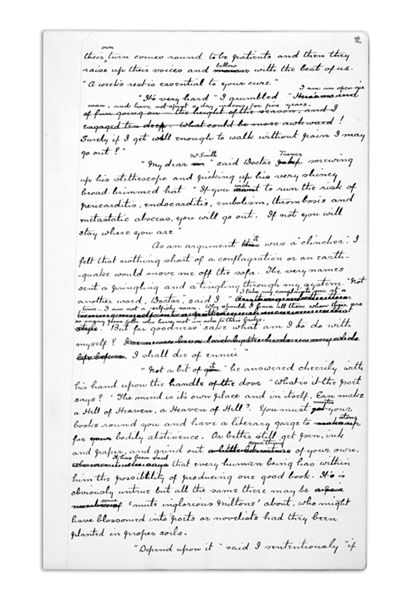 own
their turn comes round to be patients and then they
raise up their voices and bellow with the best of us.
"A week's rest is essential to your cure."
"It's very hard" I grumbled "
I am an open air
man, and have not spent a day indoors for five years.
of fun going on — the height of the season, and I
engaged ten deep. What could be more awkward!
Surely if I get well enough to walk without pain I may
go out?"
Mr Smith
Turner
"My dear" said Doctor screwing
up his stethoscope and picking up his very shiney
broad brimmed hat "If you want to run the risk of
pericarditis, endocarditis, embolism, thrombosis and
metastatic abscess, you will go out. If not you will
stay where you are"
As an argument this was a "clincher". I
felt that nothing short of a conflagration or an earth-
-quake would move me off the sofa. The very names
sent a prungling and a tingling through my system. "Not
another word, Doctor," said I "
But for goodness' sake what am I to do with
myself?
I shall die of ennui"
"Not a bit of it" he answered cheerily with
his hand upon the handle of the door "What is it the poet
says? 'The mind is its own place and in itself, Can make
a Hell of Heaven, a Heaven of Hell'. You must your
books round you and have a literary gorge to
for your bodily abstinence. Or better still get pen, ink
and paper, and grind out something of your own.
It has been said
that every human being has within
him the possiblity of producing one good book. It is
obviously untrue but all the same there may be
some
'mute inglorious Miltons' about, who might
have blossomed into poets or novelists had they been
planted in proper soils.
"Depend upon it" said I sententiously "if